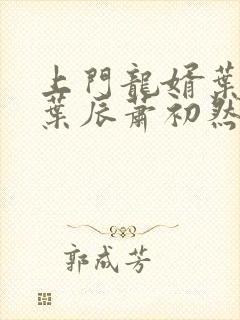 上門龍婿葉
葉辰蕭初然
郭成芳